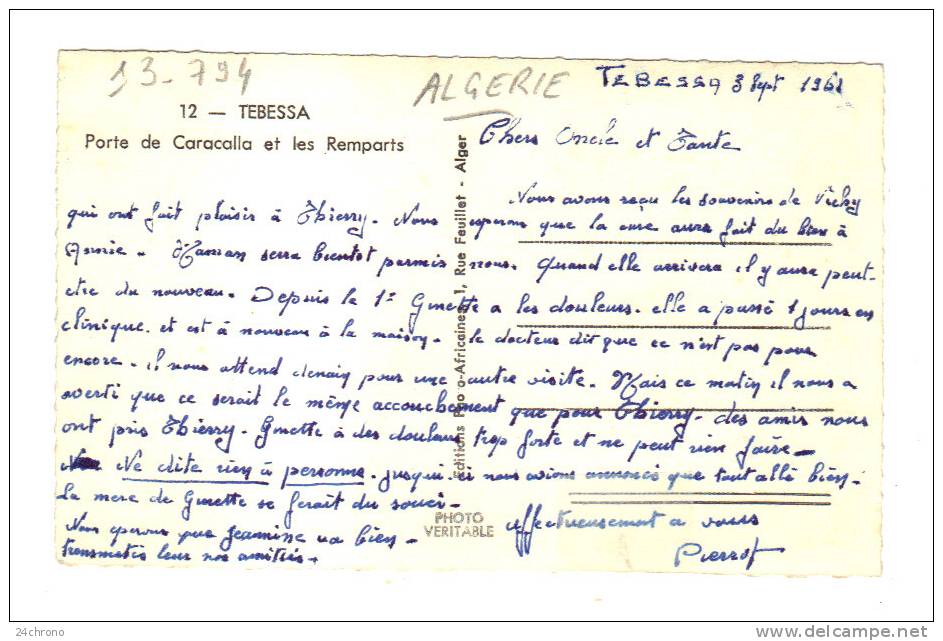 13-794
ALGERIE
TEBESSA 3 Sept 1961
12 — TEBESSA
Porte de Caracalla et les Remparts
Chers Oncle et Tante
Nous avons reçu les souvenirs de Vichy
qui ont fait plaisir à Thierry. Nous esperons que la cure aura fait du bien à
Annie. Maman serra bientot parmis nous. Quand elle arrivera il y aura peut-
etre du nouveau. Depuis le 1er Ginette a les douleurs. elle a passé 1 jours en
clinique. et est à nouveau à la maison. le docteur dit que ce n'est pas pour
encore. il nous attend demain pour une autre visite. Mais ce matin il nous a
averti que ce serait le même accouchement que pour Thierry. des amis nous
ont pris Thierry. Ginette à des douleurs trop forte et ne peut rien faire—
Ne dite rien à personne. jusqui-ci nous avions annoncé que tout allé bien.
La mere de Ginette se ferait du souci—
Nous esperons que Jeannine va bien—
transmetis leur nos amitiés—
affectueusement a vous
Pierrot
Editions Photo-Africaines, 1, Rue Feuillet - Alger
PHOTO
VERITABLE
24chrono
www.delcampe.net